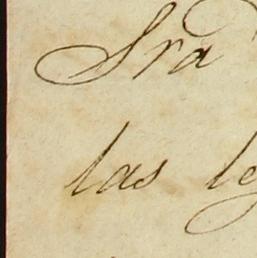 Sra
las le